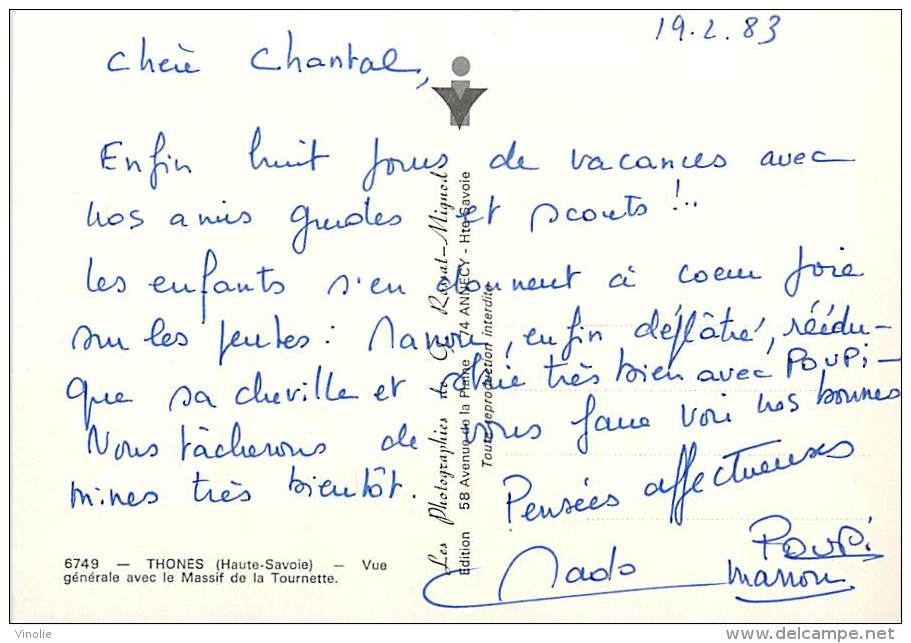 19.2.83
Chère Chantal,
Enfin huit jours de vacances avec
nos amis guides et scouts !..
Les enfants s'en donnent à coeur joie
sur les pentes : Manon, enfin déplâtré, réédu-
que sa cheville et skie très bien avec POUPi -
Nous tâcherons de vous faire voir nos bonnes
mines très bientôt.
Pensées affectueuses
Mado
POUPi
Manon
Les Photographies de G. Rossat-Mignod
Edition 58 Avenue de la Plaine - 74 ANNECY - Hte-Savoie
Toute reproduction interdite
6749 — THONES (Haute-Savoie) — Vue
générale avec le Massif de la Tournette.
Vinolie
http://www.delcampe.net